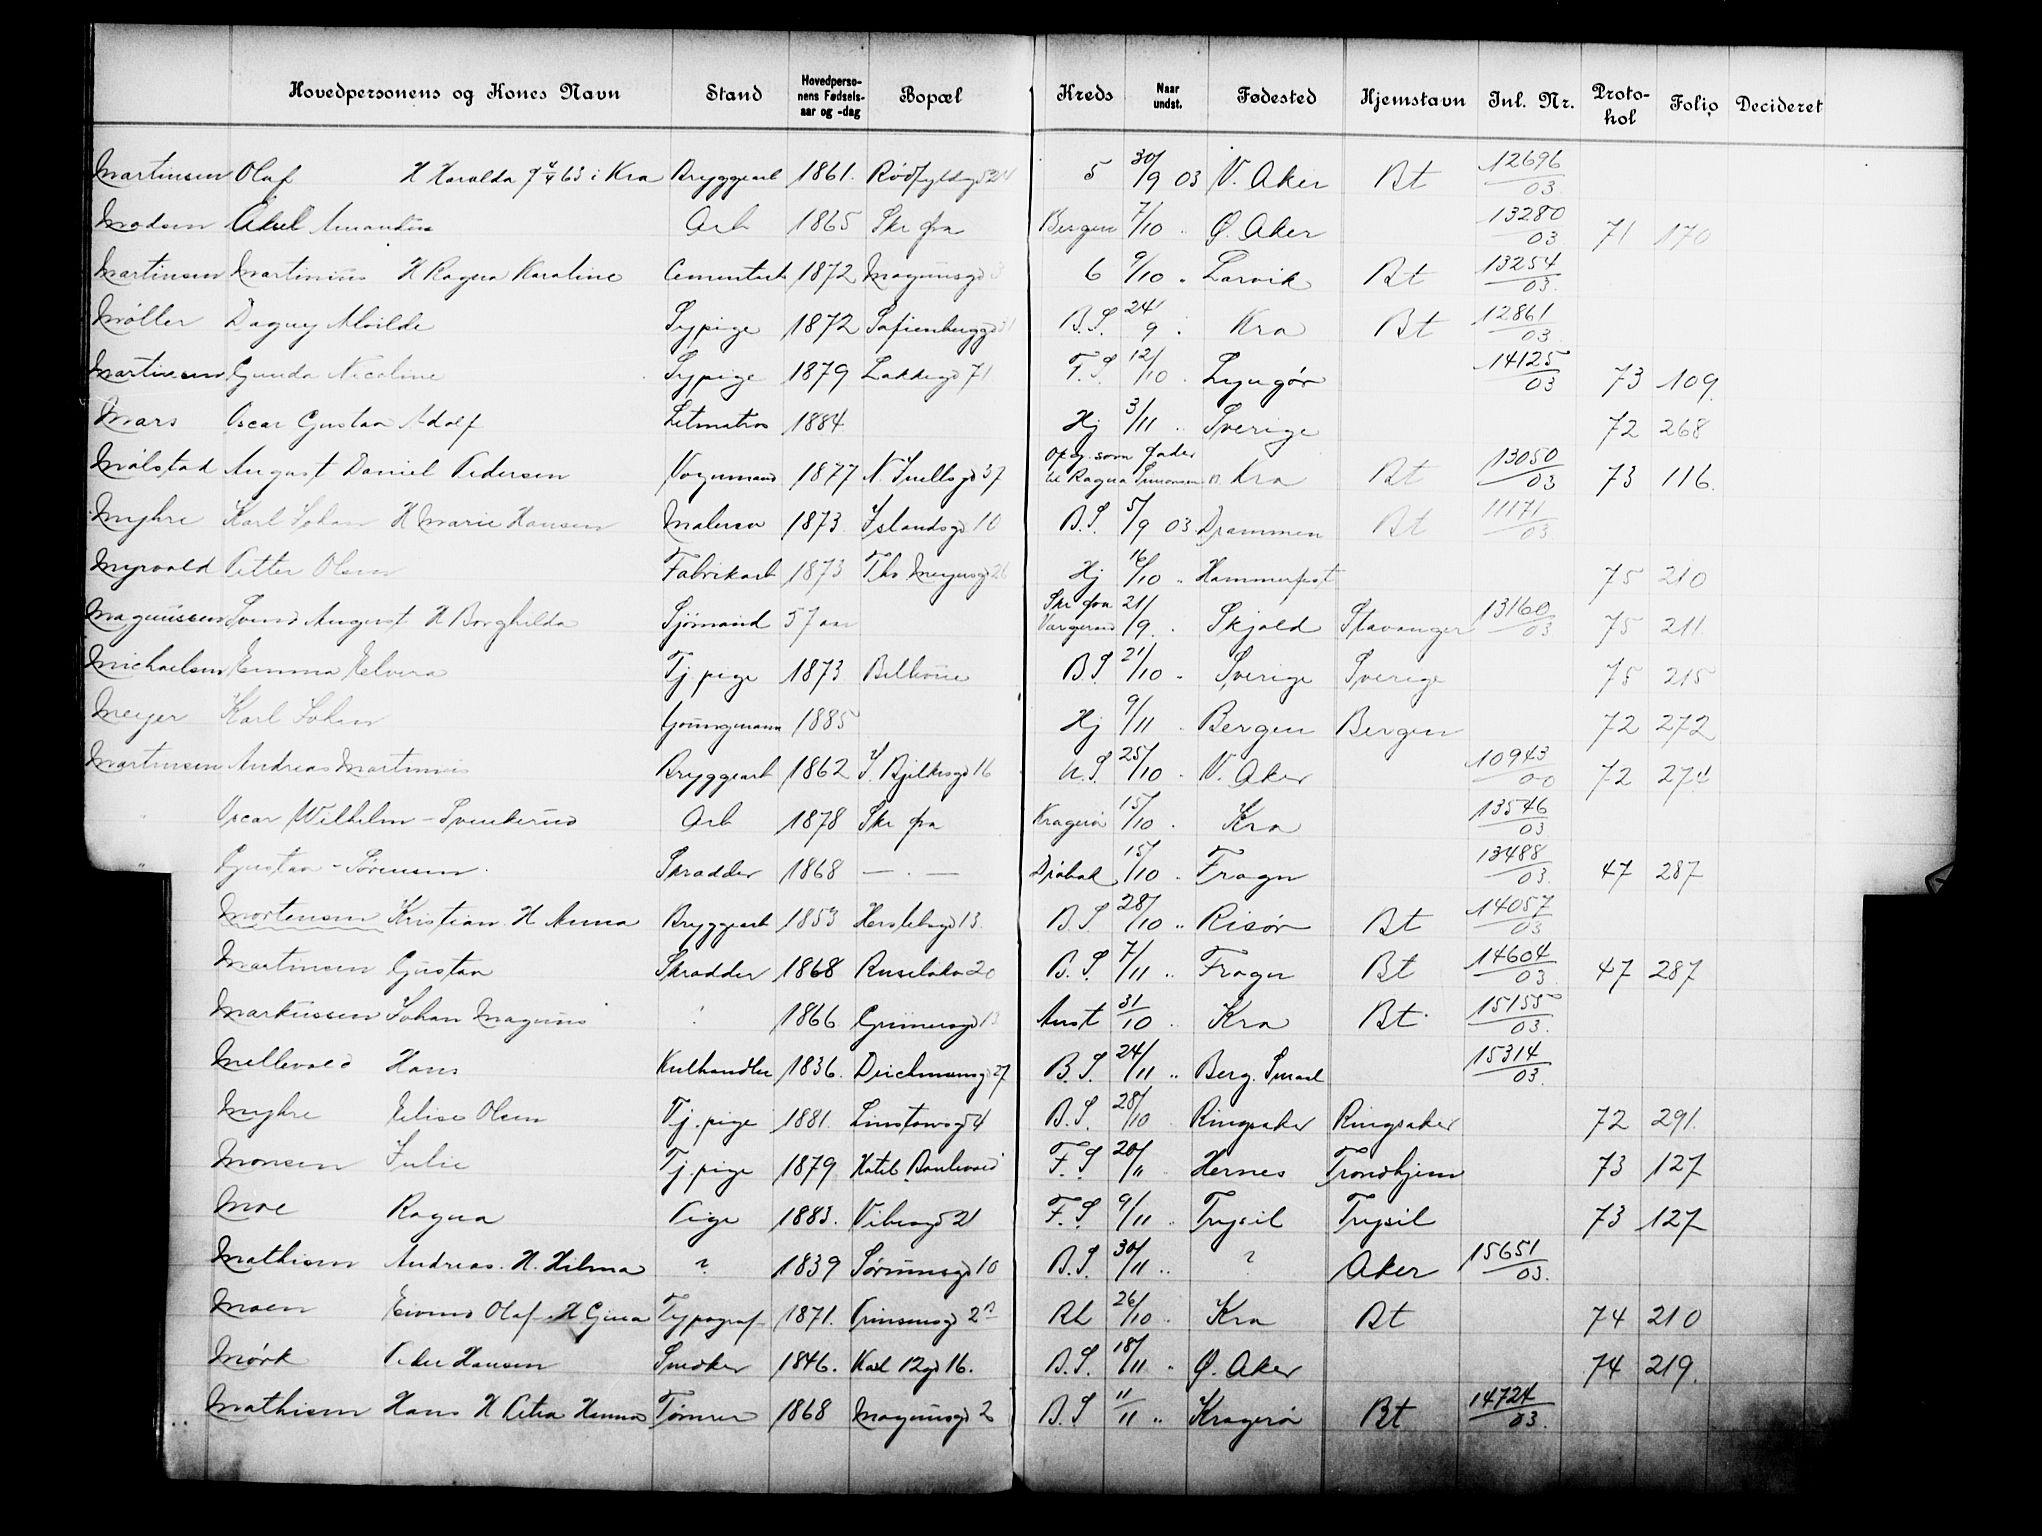 Hovedpersonens og Kones Navn Stand Hovedpersonens Fødselsaar og -dag Bopæl Kreds Naar undst. Fødested Hjemstavn Inl. Nr. Protokol Folio Decideret
Martinsen Olaf H Haralda 7/4 63 i Kra Bryggearb 1861. 5 30/9 03 V. Aker Bt 12696/03
Madsen Aksel Amandus Arb 1865 Skr fra Bergen 7/10 " Ø. Aker 13280/03 71 170
Martinsen Martinius H Ragna Karoline Cementarb 1872 Magnusgd 3 6 9/10 " Larvik Bt 13254/03
Møller Dagny Alvilde Sypige 1872 Sofienberggd 31 B.S. 24/9 " Kra Bt 12861/03
Martinsen Gunda Nicoline Sypige 1879 Lakkegd 71 F.S. 12/10 " Lyngør 14125/03 73 109
Mars Oscar Gustav Adolf Letmatros 1884 Hj 3/11 " Sverige 72 268
Målstad August Daniel Pedersen Vognmand 1877 N. Juellsgd 37 Opg. som fader til Ragna Simonsen Kra Bt 13050/03 73 116.
Myhre Karl Johan H Marie Hansen Malersv 1873 Islandsgd 10 B.S. 5/9 03 Drammen Bt 11171/03
Myrvold Petter Olsen Fabrikarb 1873 Ths Meyersgd 26 Hj 16/10 " Hammerfest 75 210
Magnussen Svend August H Borghilda Sjömand 57 aar Skr fra 21/9 " Skjold Stavanger 13160/03 75 211
Michaelsen Emma Elvera Tj. pige 1873 Bellevue B.S 21/10 " Sverige Sverige 75 215
Meyer Karl Johan Youngmann 1885 Hj 9/11 " Bergen Bergen 72 272
Martinsen Andreas Martinius Bryggearb 1862 J. Bjelkesgd 16 U.S. 25/10 " V. Aker 10943/00 72 274
Oscar Wilhelm - Svenkerud Arb 1878 Skr fra Kragerø 15/10 " Kra 13546/03
" Gustav - Sørensen. Skrædder 1868 — " — Drøbak 15/10 " Frogn 13488/03. 47 287
Mortensen Kristian H Anna Bryggearb 1853 Herslebsgd 13. B.S 28/10 " Risør Bt 14057/03
Martinsen Gustav Skrædder 1868 Ruseløkv 20 B.S. 7/11 " Frogn Bt 14604/03 47 287
Markussen Johan Magnus ? 1866 Grünersgd 13 Anst 31/10 " Kra Bt 15155/03.
Mellevold Hans Kulhandler 1836. Deichmansgd 27 B.S. 24/11 " Berg. Smaal 15314/03.
Myhre Elise Olsen Tj. pige 1881. Linstowsgd 4 B.S. 28/10 Ringsaker Ringsaker 72 291.
Monsen Julie Tj. pige 1879 Hotel Boulevard F.S 20/11 Hernes Trondhjem 73 127
Moe Ragna Pige 1883. Vibesgd 21 F.S 9/11 " Trysil Trysil 73 127
Mathisen Andreas. H. Hilma ? 1839 Sørumsgd 10 B.S. 30/11 " ? Aker 15651/03.
Moen Eivind Olaf H Gina Typograf 1871. Prinsensgd 2 B RL 26/10 " Kra Bt 74 210
Mørk Peder Hansen Snedker 1846. Karl 12gd 16. B.S. 18/11 " Ø. Aker 74 219.
Mathisen Hans H Petra Hanna Tømrer 1868 Magnusgd 2 B.S 11/11 " Kragerø Bt 14724/03.